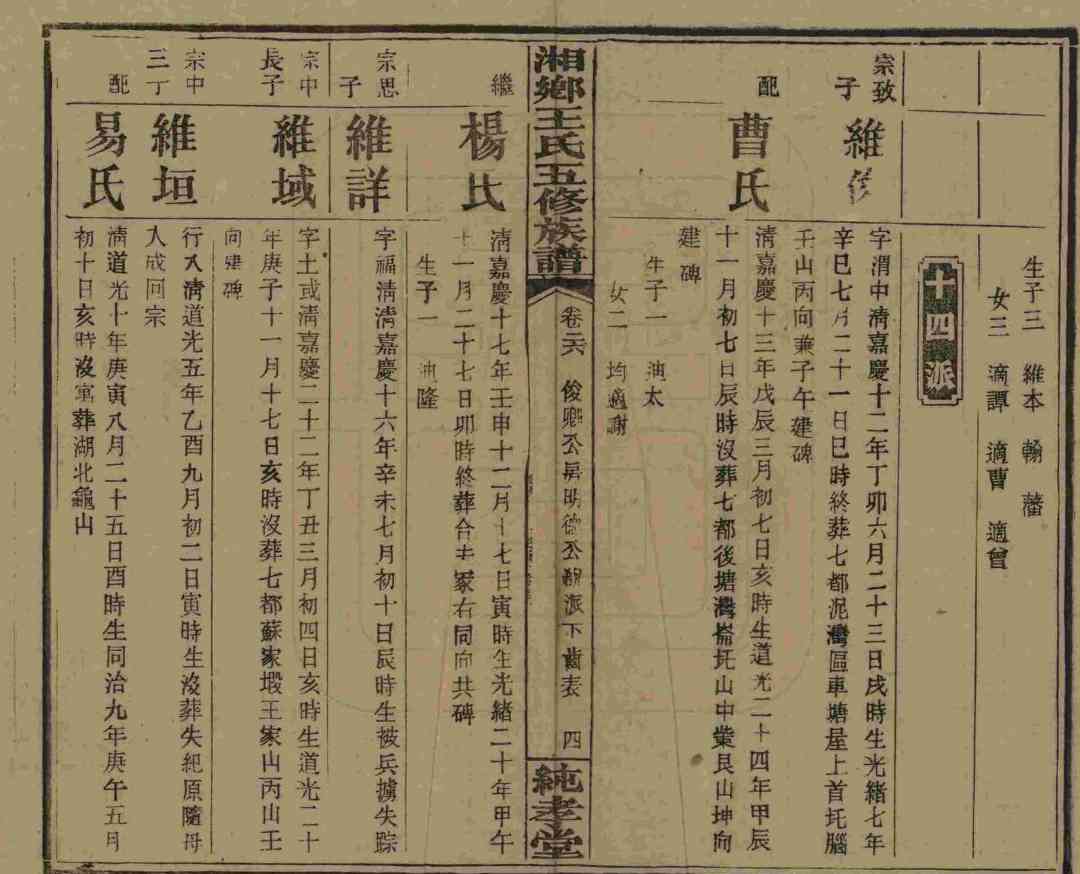 生子三 維本 翰 藩
女三 適譚 適曹 適曾
十四派
宗致
子
維
字渭中清嘉慶十二年丁卯六月二十三日戌時生光緒七年
辛巳七月二十一日巳時終葬七都泥灣區車塘屋上首圫腦
壬山丙向兼子午建碑
配
曹氏
清嘉慶十三年戊辰三月初七日亥時生道光二十四年甲辰
十一月初七日辰時沒葬七都後塘灣崙圫山中業艮山坤向
建碑
生子一 迪太
女二 均適謝
繼
楊氏
清嘉慶十七年壬申十二月十七日寅時生光緒二十年甲午
十一月二十七日卯時終葬合夫冢右同向共碑
生子一 迪隆
湘鄉王氏五修族譜
卷六 俊卿公房明德公派下齒表 四
純孝堂
宗思
子
維詳
字福清清嘉慶十六年辛未七月初十日辰時生被兵擄失踪
宗中
長子
維域
字土或清嘉慶二十二年丁丑三月初四日亥時生道光二十
年庚子十一月十七日亥時沒葬七都蘇家塅王家山丙山壬
向建碑
宗中
三丁
維垣
行八清道光五年乙酉九月初二日寅時生沒葬失紀原隨母
入成回宗
配
易氏
清道光十年庚寅八月二十五日酉時生同治九年庚午五月
初十日亥時沒葬湖北龜山